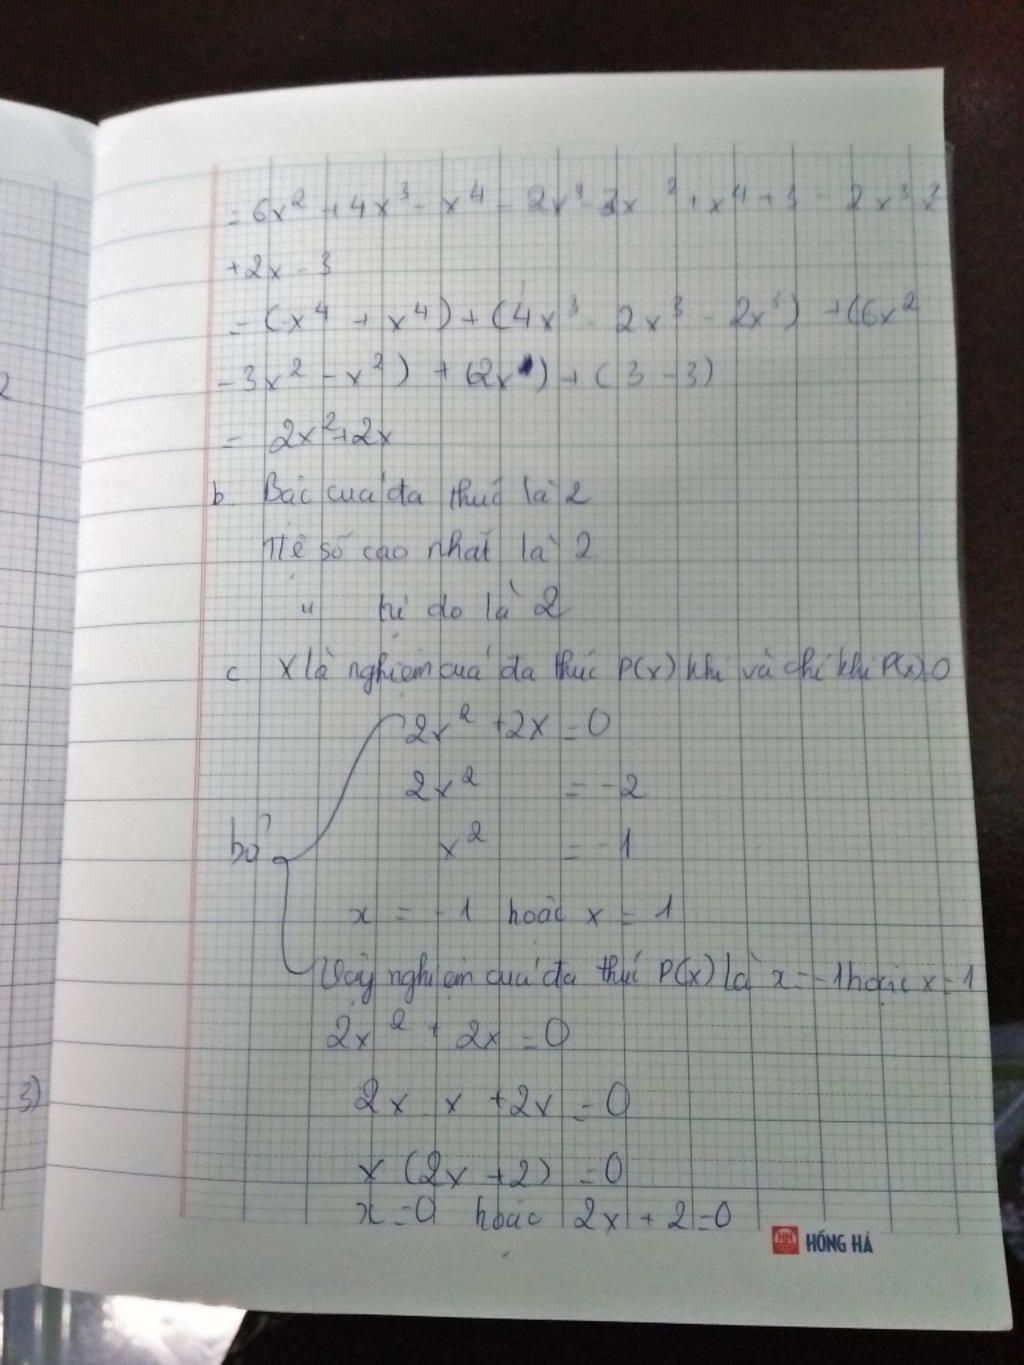 = 6x² + 4x³ - x⁴ - 2x³ - 3x² + x⁴ + 3 - 2x³ x²
+2x - 3
= (-x⁴ + x⁴) + (4x³ - 2x³ - 2x³) + (6x²
- 3x² - x²) + (2x) + (3 - 3)
= 2x² + 2x
b Bậc của đa thức là 2
Hệ số cao nhất là 2
" tự do là 2
c X là nghiệm của đa thức P(x) khi và chỉ khi P(x)=0
2x² + 2x = 0
2x² = -2
bỏ
x² = -1
x = -1 hoặc x = 1
Vậy nghiệm của đa thức P(x) là x = -1 hoặc x = 1
2x² + 2x = 0
3)
2x x + 2x = 0
x (2x + 2) = 0
x = 0 hoặc 2x + 2 = 0
HH HỒNG HÀ
2